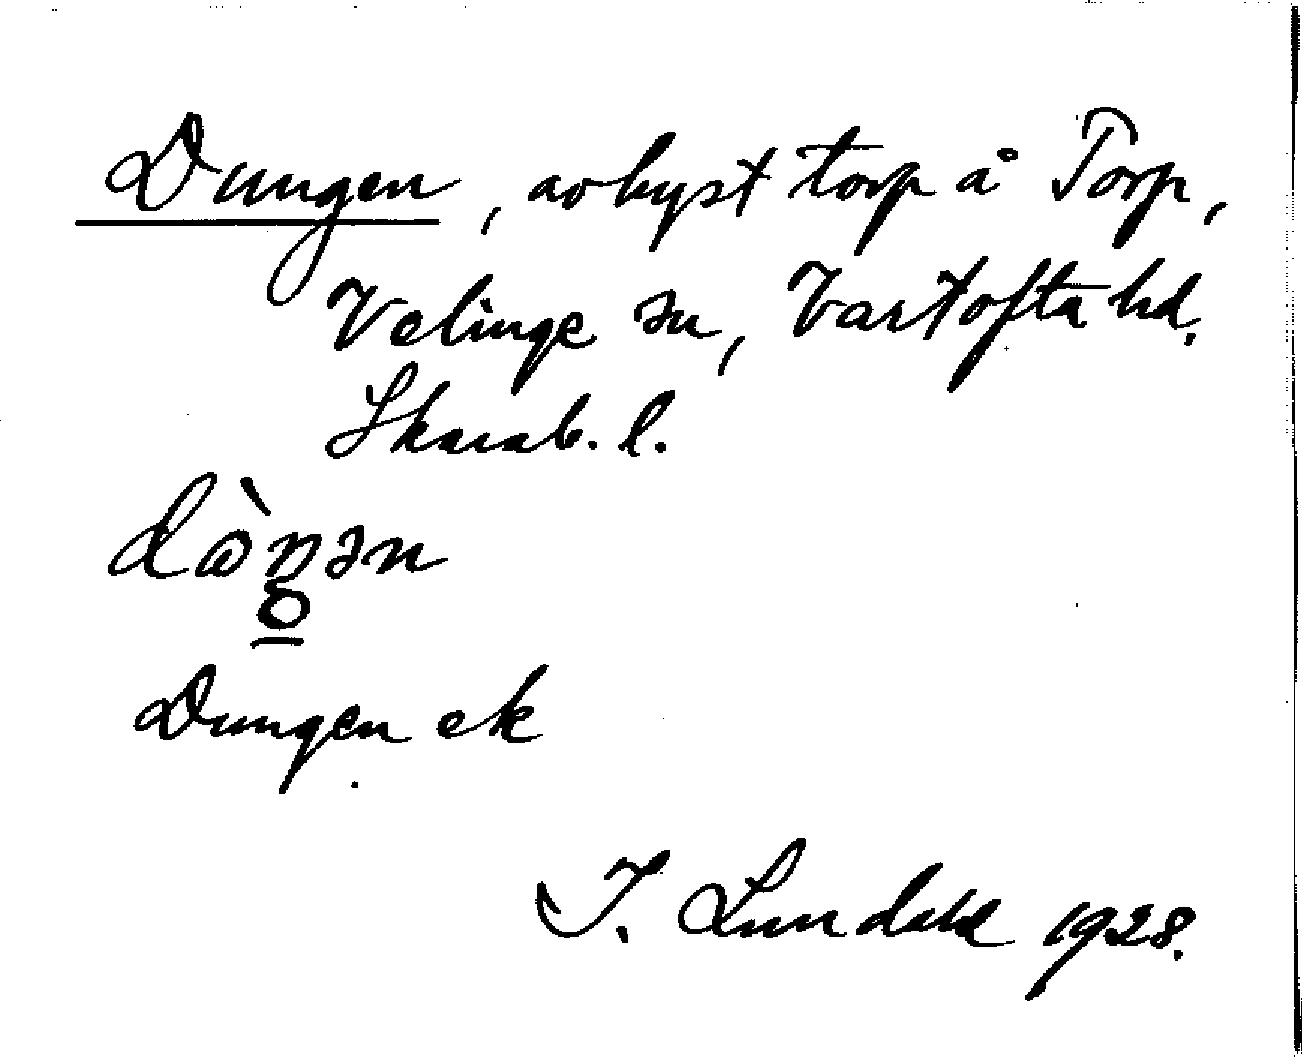 Dungen, avhyst torp å Torp,
Velinge sn, Vartofta hd.
Skarab. l.
dàŋən
Dungen ek
I. Lundahl 1928.